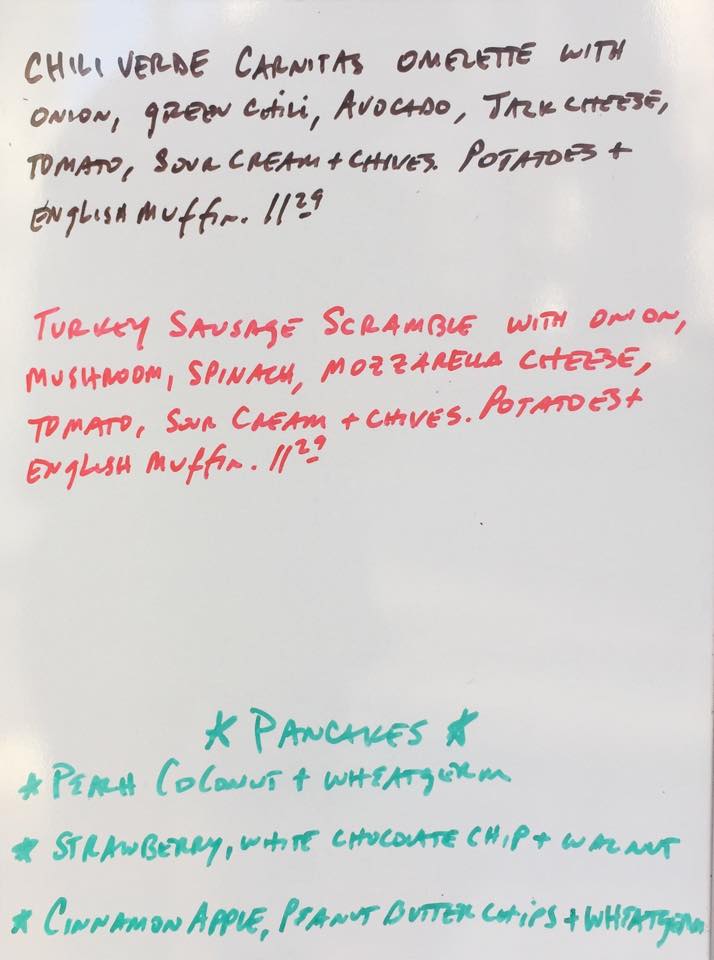 CHILI VERDE CARNITAS OMELETTE WITH
ONION, GREEN CHILI, AVOCADO, JACK CHEESE,
TOMATO, SOUR CREAM + CHIVES. POTATOES +
ENGLISH MUFFIN. 11 29
TURKEY SAUSAGE SCRAMBLE WITH ONION,
MUSHROOM, SPINACH, MOZZARELLA CHEESE,
TOMATO, SOUR CREAM + CHIVES. POTATOES +
ENGLISH MUFFIN. 11 29
* PANCAKES *
* PEACH COCONUT + WHEATGERM
* STRAWBERRY, WHITE CHOCOLATE CHIP + WALNUT
* CINNAMON APPLE, PEANUT BUTTER CHIPS + WHEATGERM